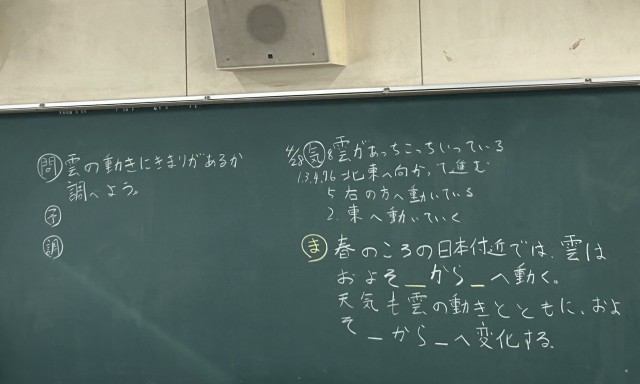 問 雲の動きにきまりがあるか
調べよう。
予
調
4/28 気 8 雲があっちこっちいっている
1.3.4.7.6 北東へ向かって進む
5 右の方へ動いている
2. 東へ動いていく
ま 春のころの日本付近では、雲は
およそ_から_へ動く。
天気も雲の動きとともに、およ
そ_から_へ変化する。